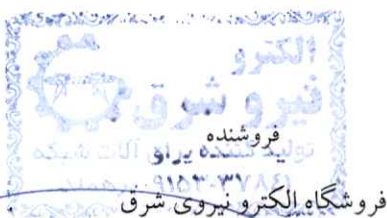 الکترو
نیرو شرق
فروشنده
تولید کننده یراق آلات شبکه
فروشگاه الکترو نیروی شرق